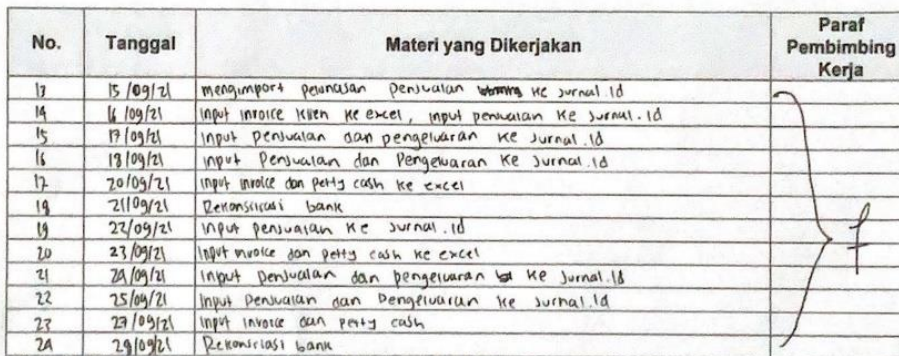 No. Tanggal Materi yang Dikerjakan Paraf Pembimbing Kerja
13 15/09/21 mengimport pelunasan penjualan ke jurnal.id
14 16/09/21 input invoice klien ke excel, input penjualan ke jurnal.id
15 17/09/21 input penjualan dan pengeluaran ke jurnal.id
16 18/09/21 input penjualan dan pengeluaran ke jurnal.id
17 20/09/21 input invoice dan petty cash ke excel
18 21/09/21 Rekonsiliasi bank
19 22/09/21 input penjualan ke jurnal.id
20 23/09/21 input invoice dan petty cash ke excel
21 24/09/21 input penjualan dan pengeluaran ke jurnal.id
22 25/09/21 input penjualan dan pengeluaran ke jurnal.id
23 27/09/21 input invoice dan petty cash
24 28/09/21 Rekonsiliasi bank